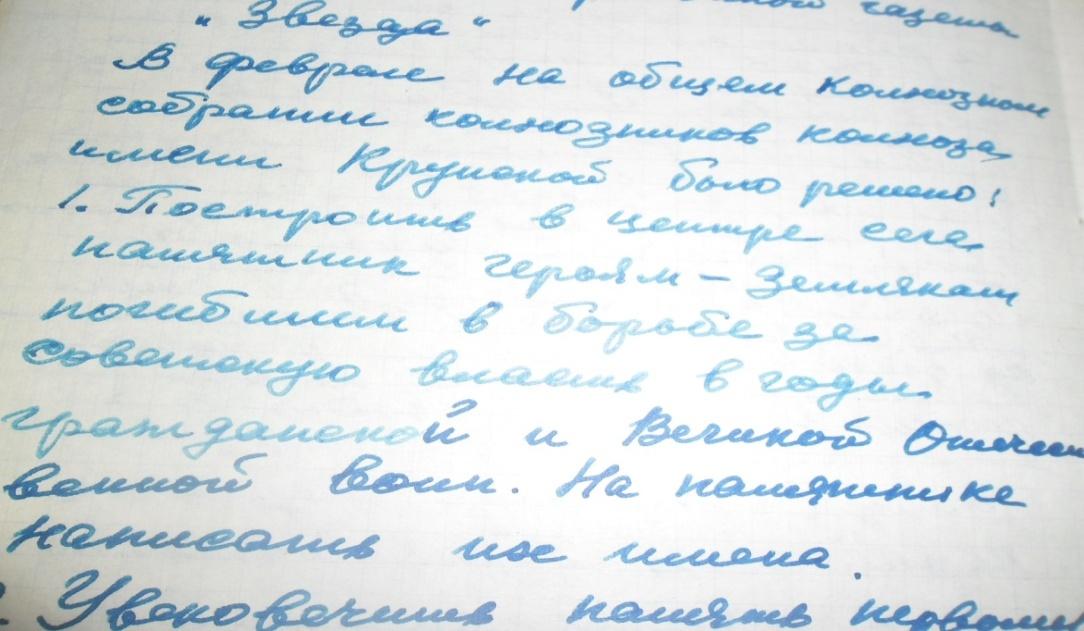 газеты
"Звезда"
В феврале на общем колхозном
собрании колхозников колхоза
имени Крупской было решено:
1. Построить в центре села
памятник героям - Землякам
погибшим в борьбе за
советскую власть в годы
гражданской и Великой Отечест
венной воин. На памятнике
написать их имена.
Увековечить память первого